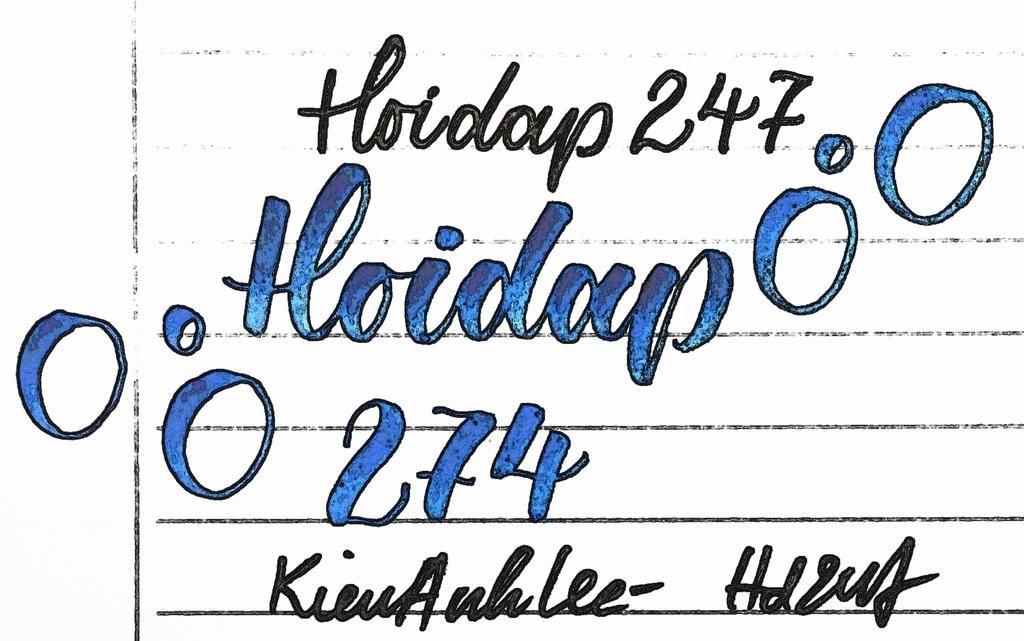 Hoidap 247
Hoidap
274
KienAnhLee-